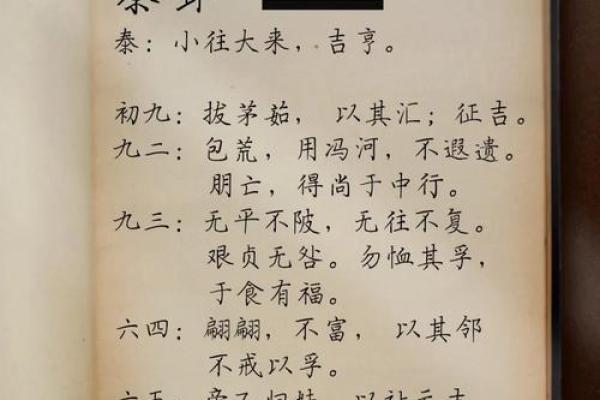 泰：小往大来，吉亨。
初九：拔茅茹， 以其汇；征吉。
九二：包荒，用冯河，不遐遗。
朋亡，得尚于中行。
九三：无平不陂，无往不复。
艰贞无咎。勿恤其孚，
于食有福。
六四：翩翩，不富， 以其邻
不戒以孚。